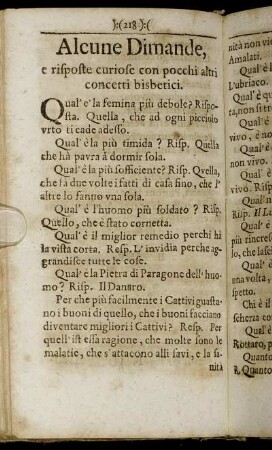 ):( 218 ):(
Alcune Dimande,
e risposte curiose con pocchi altri
concetti bisbetici.
QUal' e' la femina più debole? Rispo-
sta. Quella, che ad ogni picciolo
vrto ti cade adesso.
Qual' è la più timida ? Risp. Quella
che hà pavra à dormir sola.
Qual' è la più sofficiente? Risp. Qvella,
che fa due volte i fatti di casa sino, che l'
altre lo fanno vna sola.
Qual' è l'huomo più soldato ? Risp.
Quello, che è stato cornetta.
Qual' è il miglior remedio perchi hà
la vista corta. Resp. L' invidia perche ag-
grandisce tutte le cose.
Qual' è la Pietra di Paragone dell' huo-
mo? Risp. Il Danaro.
Per che più facilmente i Cattivi guasta-
no i buoni di quello, che i buoni facciano
diventare migliori i Cattivi? Resp. Per
quell' ist essa ragione, che molte sono le
malatie, che s'attacono alli savi, e la sa-
nità
nità non vie
Amalati.
Qual' è
L'ubriaco.
Qual' è
ta, non si
Qual' è
vivo, è no
Qual' è
non vivo.
Qual' è
vivo. Risp
Qual' è
Risp. Il L
Qual' è
più rincres
lo, che lasc
Qual' è
vna volta,
spetto.
Chi è il
scherza co
Rottaro, p
Quanto
R. Quanto